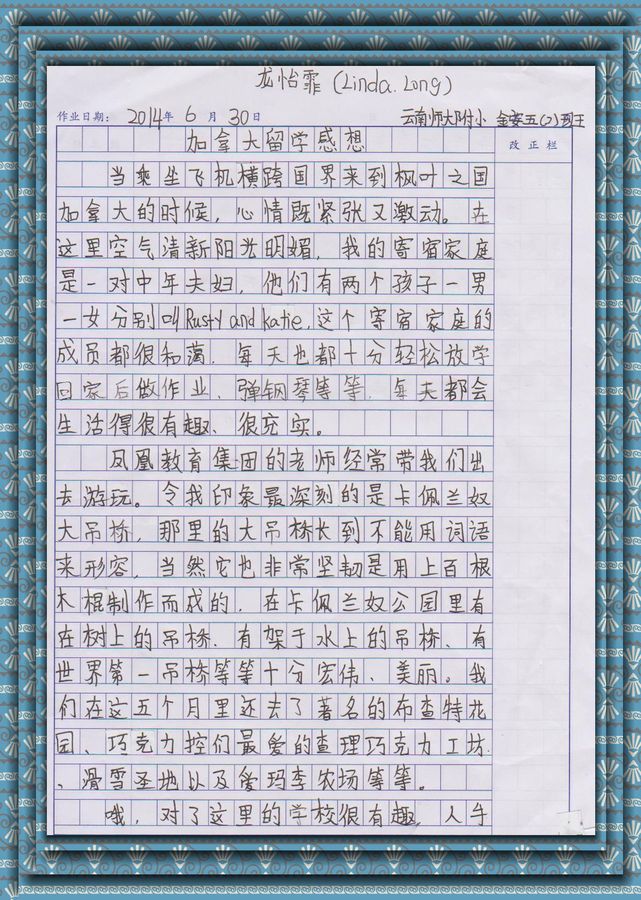 龙怡霏(Linda.Long)
作业日期: 2014年 6 月 30日 云南师大附小 金安五(2)班王
加拿大留学感想
改正栏
当乘坐飞机横跨国界来到枫叶之国
加拿大的时候,心情既紧张又激动。在
这里空气清新阳光明媚,我的寄宿家庭
是一对中年夫妇,他们有两个孩子一男
一女分别叫Rusty and Katie,这个寄宿家庭的
成员都很和蔼.每天也都十分轻松放学
回家后做作业、弹钢琴等等.每天都会
生活得很有趣、很充实。
凤凰教育集团的老师经常带我们出
去游玩。令我印象最深刻的是卡佩兰奴
大吊桥,那里的大吊桥长到不能用词语
来形容,当然它也非常坚韧是用上百根
木棍制作而成的.在卡佩兰奴公园里有
在树上的吊桥.有架于水上的吊桥、有
世界第一吊桥等等十分宏伟、美丽。我
们在这五个月里还去了著名的布查特花
园、巧克力控们最爱的查理巧克力工坊
、滑雪圣地以及爱玛李农场等等。
哦,对了这里的学校很有趣,人手